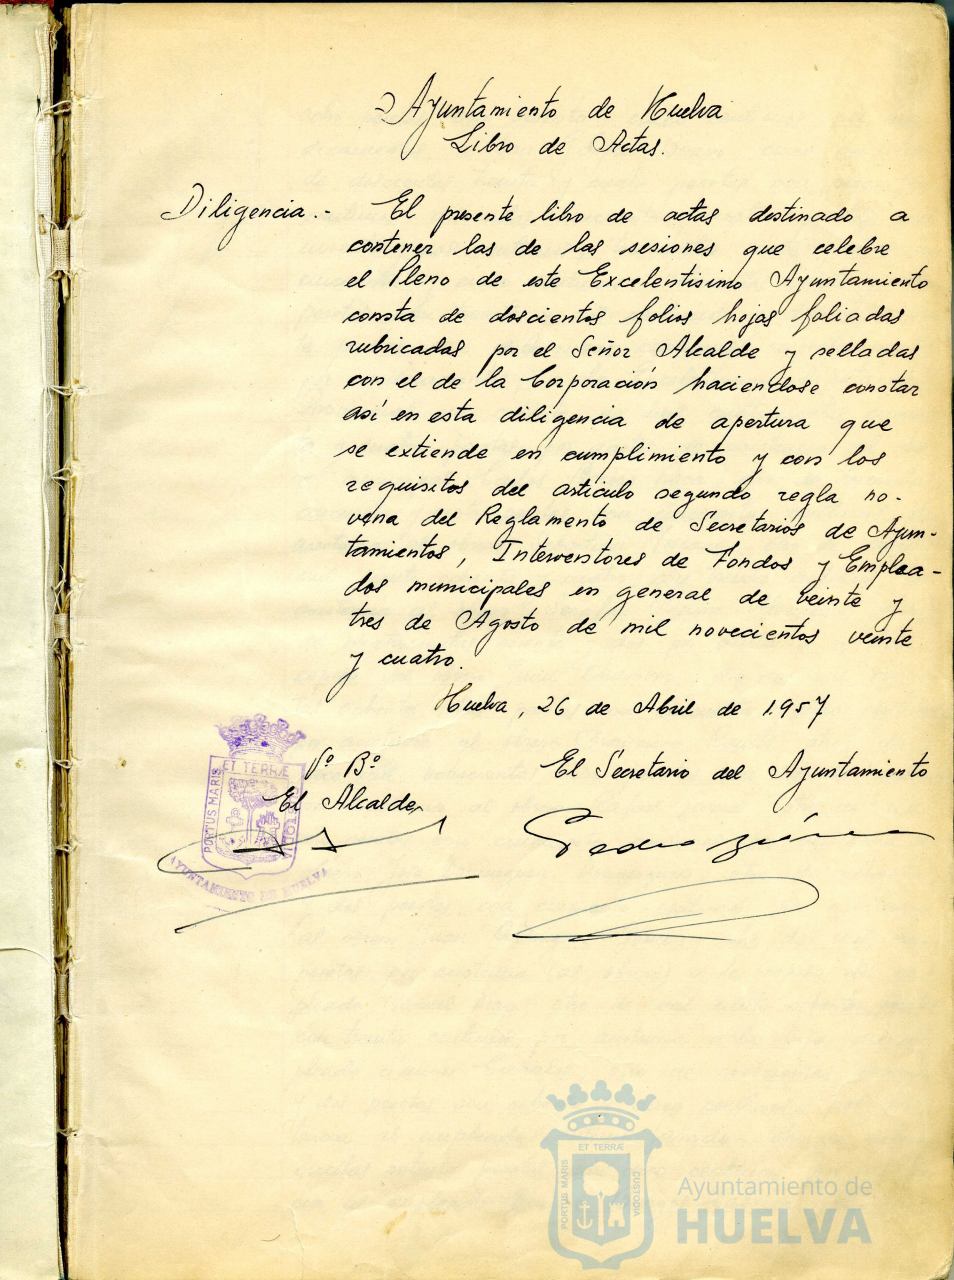 Ayuntamiento de Huelva
Libro de Actas.
Diligencia.- El presente libro de actas destinado a
contener las de las sesiones que celebre
el Pleno de este Excelentisimo Ayuntamiento
consta de doscientos folios hojas foliadas
rubricadas por el Señor Alcalde y selladas
con el de la Corporación haciendose constar
así en esta diligencia de apertura que
se extiende en cumplimiento y con los
requisitos del artículo segundo regla no-
vena del Reglamento de Secretarios de Ayun-
tamientos, Interventores de Fondos y Emplea-
dos municipales en general de veinte y
tres de Agosto de mil novecientos veinte
y cuatro.
Huelva, 26 de Abril de 1.957
Vº Bº
El Alcalde,
El Secretario del Ayuntamiento
PORTUS MARIS ET TERRÆ CUSTODIA
AYUNTAMIENTO DE HUELVA
Pedro
PORTUS MARIS ET TERRÆ CUSTODIA
Ayuntamiento de
HUELVA